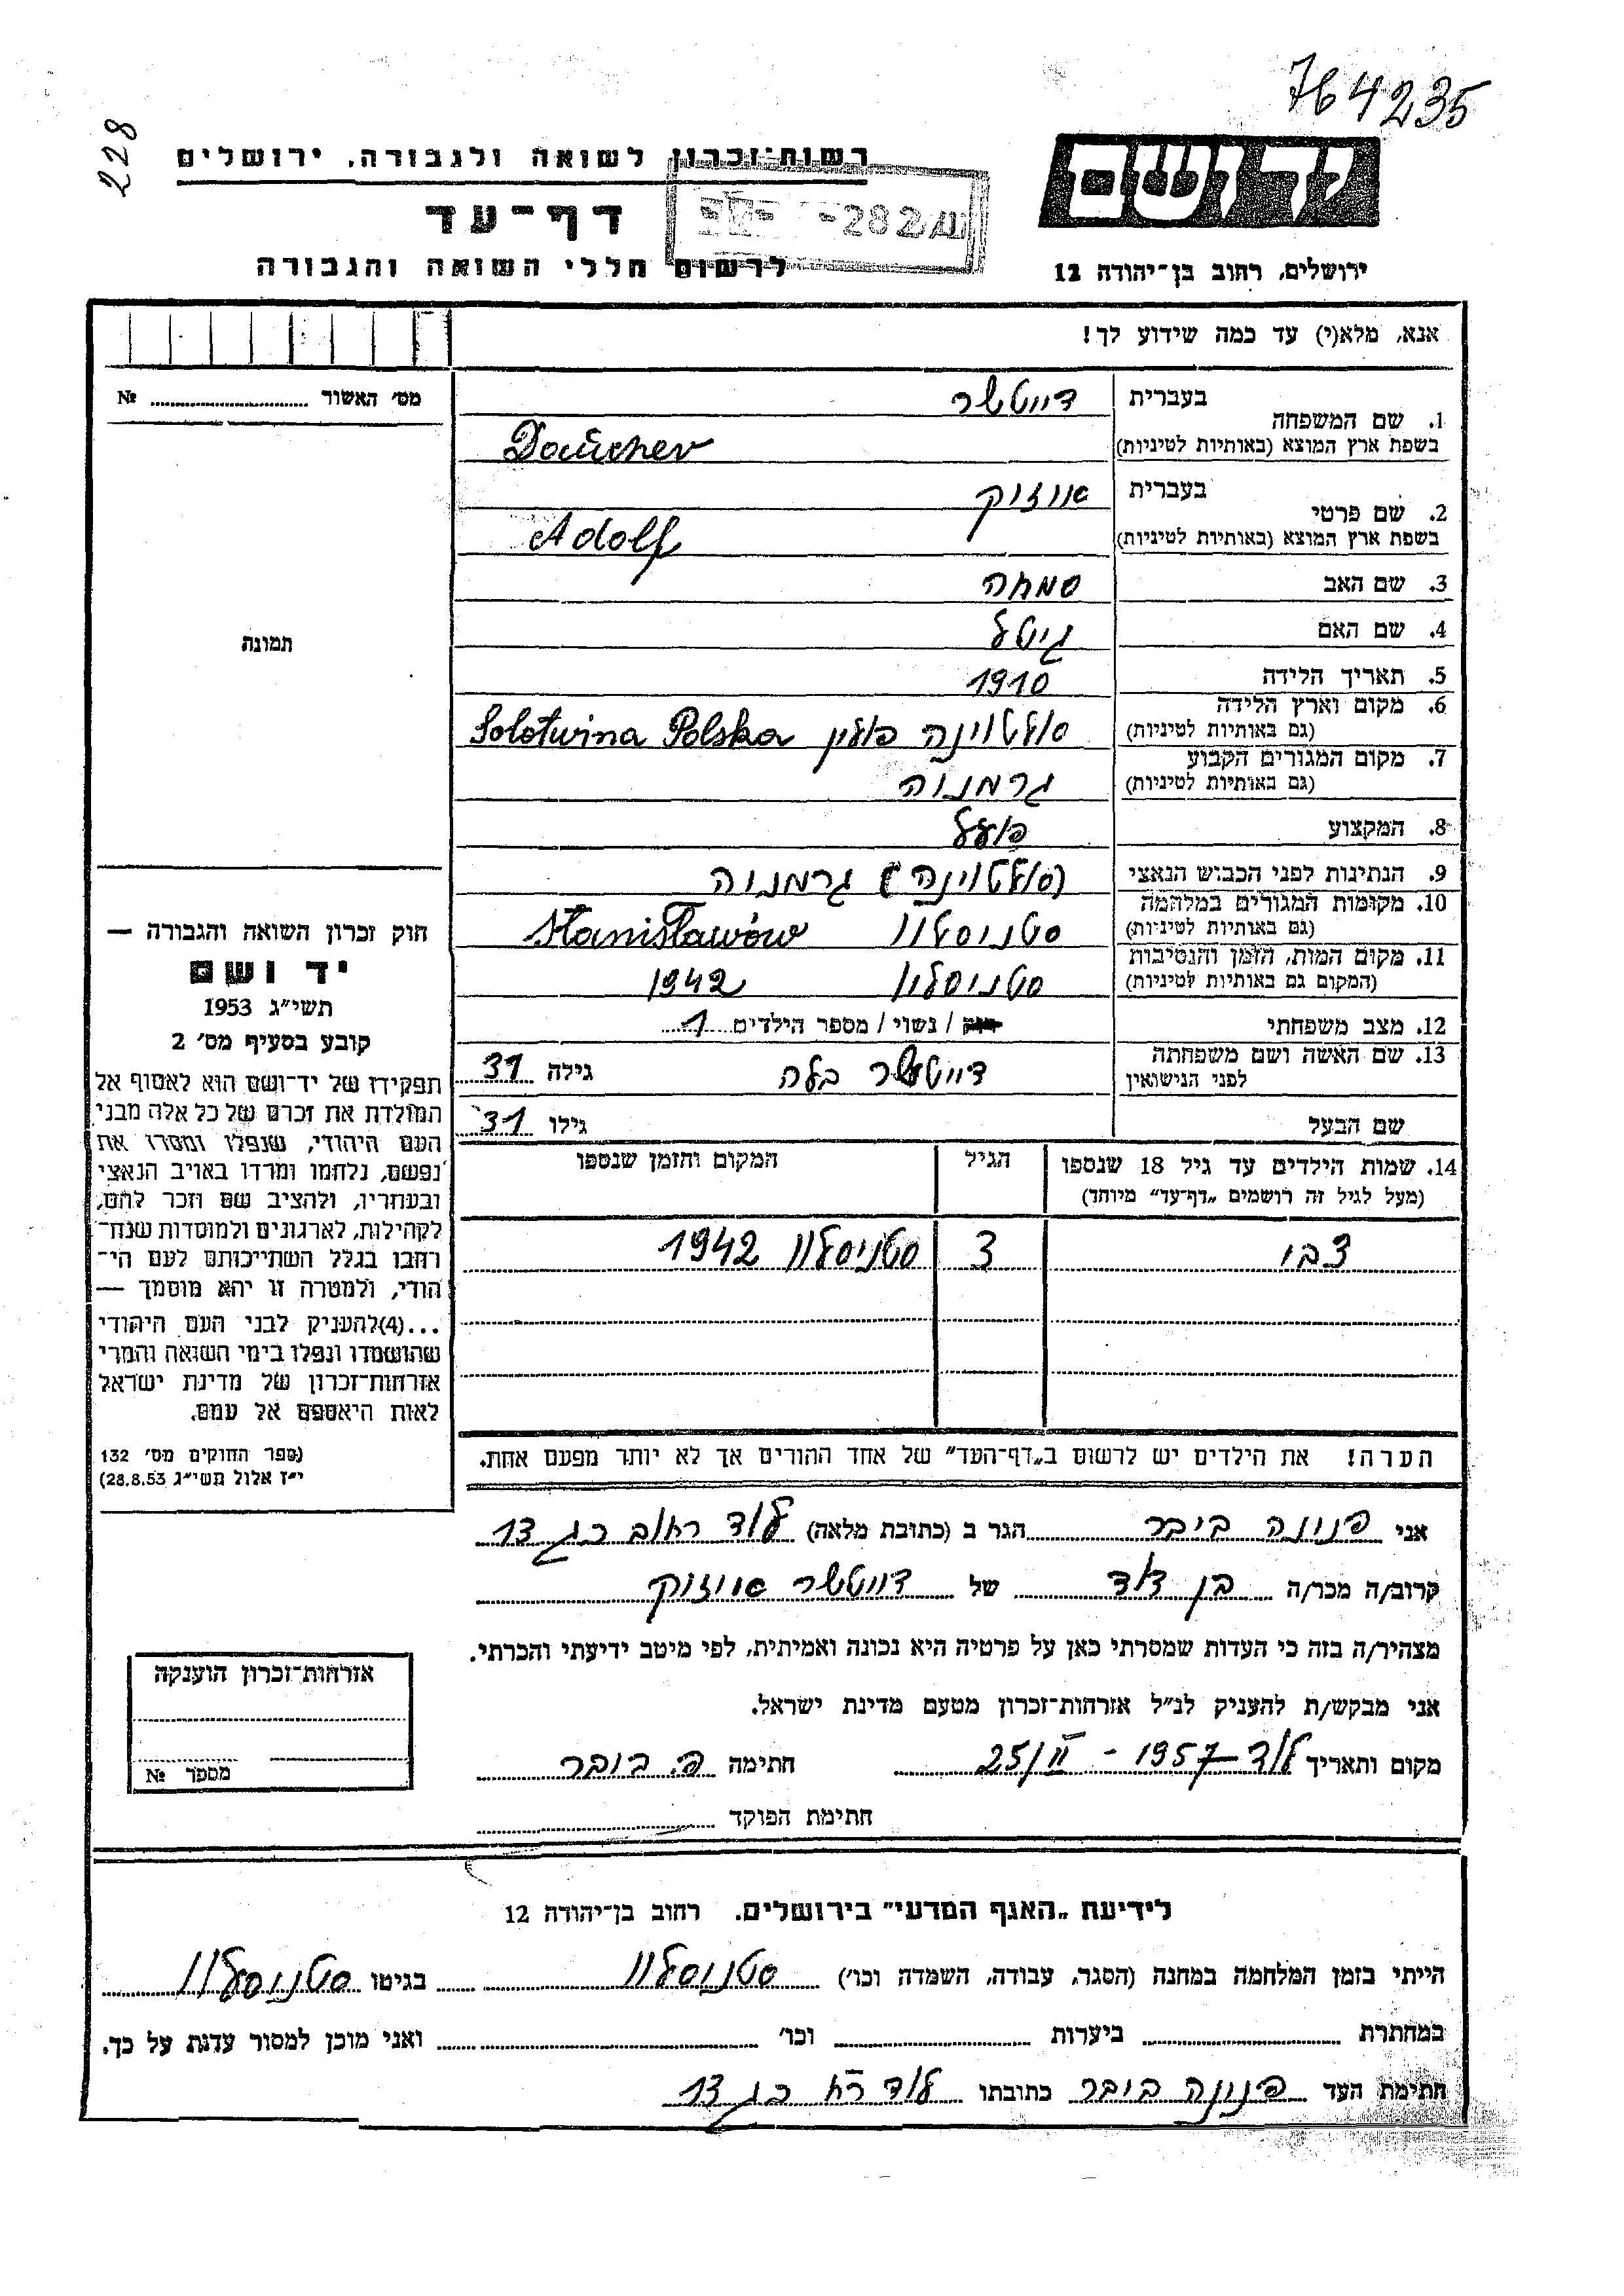 764235
228
רשות־זכרון לשואה ולגבורה, ירושלים
יד ושם
דף־עד
לרשום חללי השואה והגבורה
ירושלים, רחוב בן־יהודה 12
אנא, מלא(י) עד כמה שידוע לך!
מס׳ האשור № 
1. שם המשפחה
בעברית דייטשר
בשפת ארץ המוצא (באותיות לטיניות)
2. שם פרטי
בעברית אייזיק
בשפת ארץ המוצא (באותיות לטיניות) Adolf
3. שם האב שמחה
4. שם האם גיטל
5. תאריך הלידה 1910
6. מקום וארץ הלידה
(גם באותיות לטיניות) סולוטוינה פולין Solotwina Polska
7. מקום המגורים הקבוע
(גם באותיות לטיניות) גרמניה
8. המקצוע פועל
9. הנתינות לפני הכבוש הנאצי (סולוטוינה) גרמניה
10. מקומות המגורים במלחמה
(גם באותיות לטיניות) סטניסלוו Stanisławów
11. מקום המות, הזמן והנסיבות
(המקום גם באותיות לטיניות) סטניסלוו 1942
12. מצב משפחתי / נשוי / מספר הילדים 1
13. שם האשה ושם משפחתה
לפני הנישואין דייטשר בלה גילה 31
שם הבעל גילו 31
14. שמות הילדים עד גיל 18 שנספו
(מעל לגיל זה רושמים „דף־עד” מיוחד)
הגיל
המקום והזמן שנספו
צבי 3 סטניסלוו 1942
הערה! את הילדים יש לרשום ב„דף־העד” של אחד ההורים אך לא יותר מפעם אחת.
תמונה
חוק זכרון השואה והגבורה —
יד ושם
תשי״ג 1953
קובע בסעיף מס׳ 2
תפקידו של יד־ושם הוא לאסוף אל
המולדת את זכרם של כל אלה מבני
העם היהודי, שנפלו ומסרו את
נפשם, נלחמו ומרדו באויב הנאצי
ובעוזריו, ולהציב שם וזכר להם,
לקהילות, לארגונים ולמוסדות שנח־
רבו בגלל השתייכותם לעם הי־
הודי, ולמטרה זו יהא מוסמך —
...(4)להעניק לבני העם היהודי
שהושמדו ונפלו בימי השואה והמרי
אזרחות־זכרון של מדינת ישראל
לאות היאספם אל עמם.
(ספר החוקים מס׳ 132
י״ז אלול תשי״ג 28.8.53)
אני פנינה ביבר הגר ב (כתובת מלאה) לוד רחוב כג 13
קרוב/ה מכר/ה בן דוד של דייטשר אייזיק
מצהיר/ה בזה כי העדות שמסרתי כאן על פרטיה היא נכונה ואמיתית, לפי מיטב ידיעתי והכרתי.
אני מבקש/ת להעניק לנ״ל אזרחות־זכרון מטעם מדינת ישראל.
מקום ותאריך לוד 25/II – 1957 חתימה פ. ביבר
חתימת הפוקד
אזרחות־זכרון הוענקה
מספר №
לידיעת „האגף המדעי” בירושלים. רחוב בן־יהודה 12
הייתי בזמן המלחמה במחנה (הסגר, עבודה, השמדה וכו׳) סטניסלוו בגיטו סטניסלוו
במחתרת ביערות וכו׳ ואני מוכן למסור עדות על כך.
חתימת העד פנינה ביבר כתובתו לוד רח כג 13